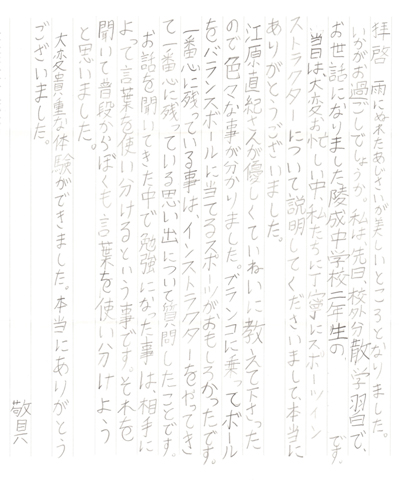 拝啓 雨にぬれたあじさいが美しいところとなりました。
いかがお過ごしでしょうか。私は、先日、校外分散学習で、
お世話になりました陵成中学校二年生の です。
当日は、大変お忙しい中、私たちに丁寧にスポーツイン
ストラクターについて説明してくださいまして、本当に
ありがとうございました。
江原直紀さんが優しくていねいに教えて下さった
ので色々な事が分かりました。ブランコに乗ってボール
をバランスボールに当てるスポーツがおもしろかったです。
一番心に残っている事は、インストラクターをやってき
て一番心に残っている思い出について質問したことです。
お話を聞いてきた中で勉強になった事は相手に
よって言葉を使い分けるという事です。それを
聞いて普段からぼくも言葉を使い分けよう
と思いました。
大変貴重な体験ができました。本当にありがとう
ございました。
敬具